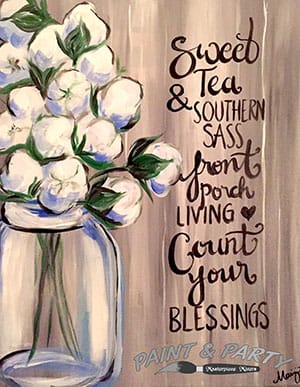 Sweet
Tea
& SOUTHERN
SASS
front
porch
LIVING ♥
Count
your
BLESSINGS
PAINT & PARTY
Masterpiece Mixers